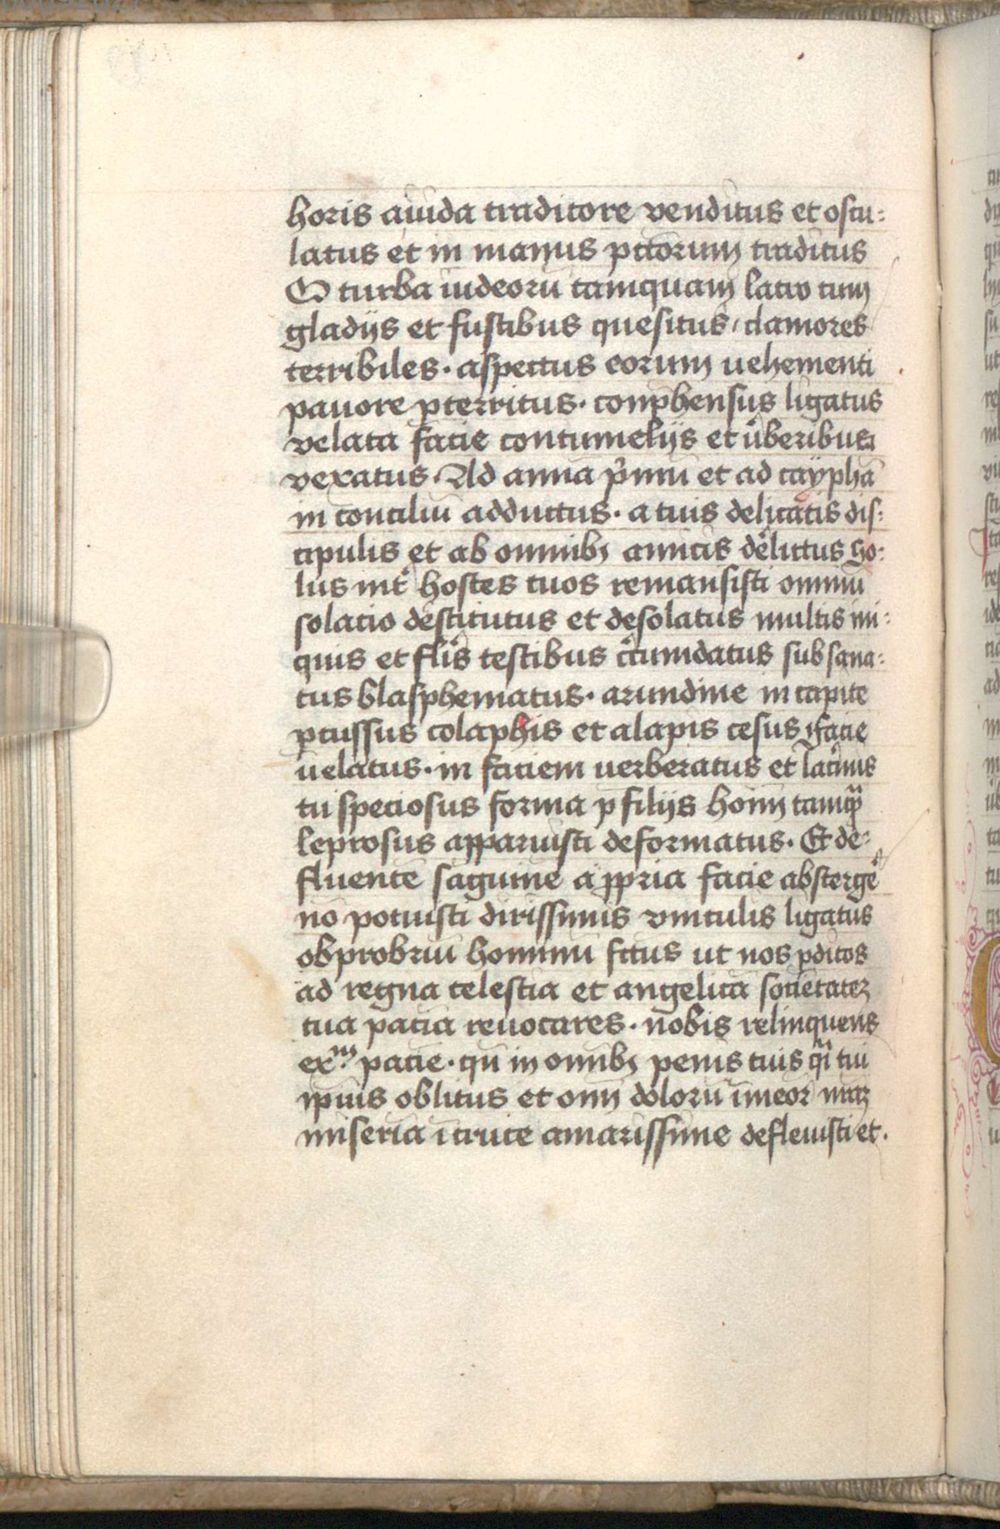 horis a iuda traditore venditus et oscu-
latus et in manus pctorum traditus
O turba iudeorū tamquam latro cum
gladijs et fustibus quesitus, clamores
terribiles. aspectus eorum uehementi
pauore pterritus. conphensus ligatus
velata facie contumelijs et ūberibus
vexatus. Ad anna p̄mu et ad caypha
in conciliu adductus. a tuis delicatis dis-
cipulis et ab omnibꝫ amicis delictus so-
lus int̄ hostes tuos remansisti omniū
solacio destitutus et desolatus multis ini-
quis et fl̄is testibus c̄cumdatus subsana-
tus blasphematus. arundine in capite
pcussus colaphis et alapis cesus facie
uelatus. in faciem uerberatus et lac̄mis
tu speciosus forma p filijs homī tamq̄
leprosus apparuisti deformatus. Et de-
fluente sāguine a ppria facie absterge
nō potuisti dirissimis vinculis ligatus
obprobriū hominū fctus ut nos pditos
ad regna celestia et angelica societateꝫ
tua pacia reuocares. nobis relinquens
ex.m pacie. qn in omībꝫ penis tuis q̄i tui
ipius oblitus et omī dolorū īmeor meaꝫ
miseria ī cruce amarissime defleuisti et.